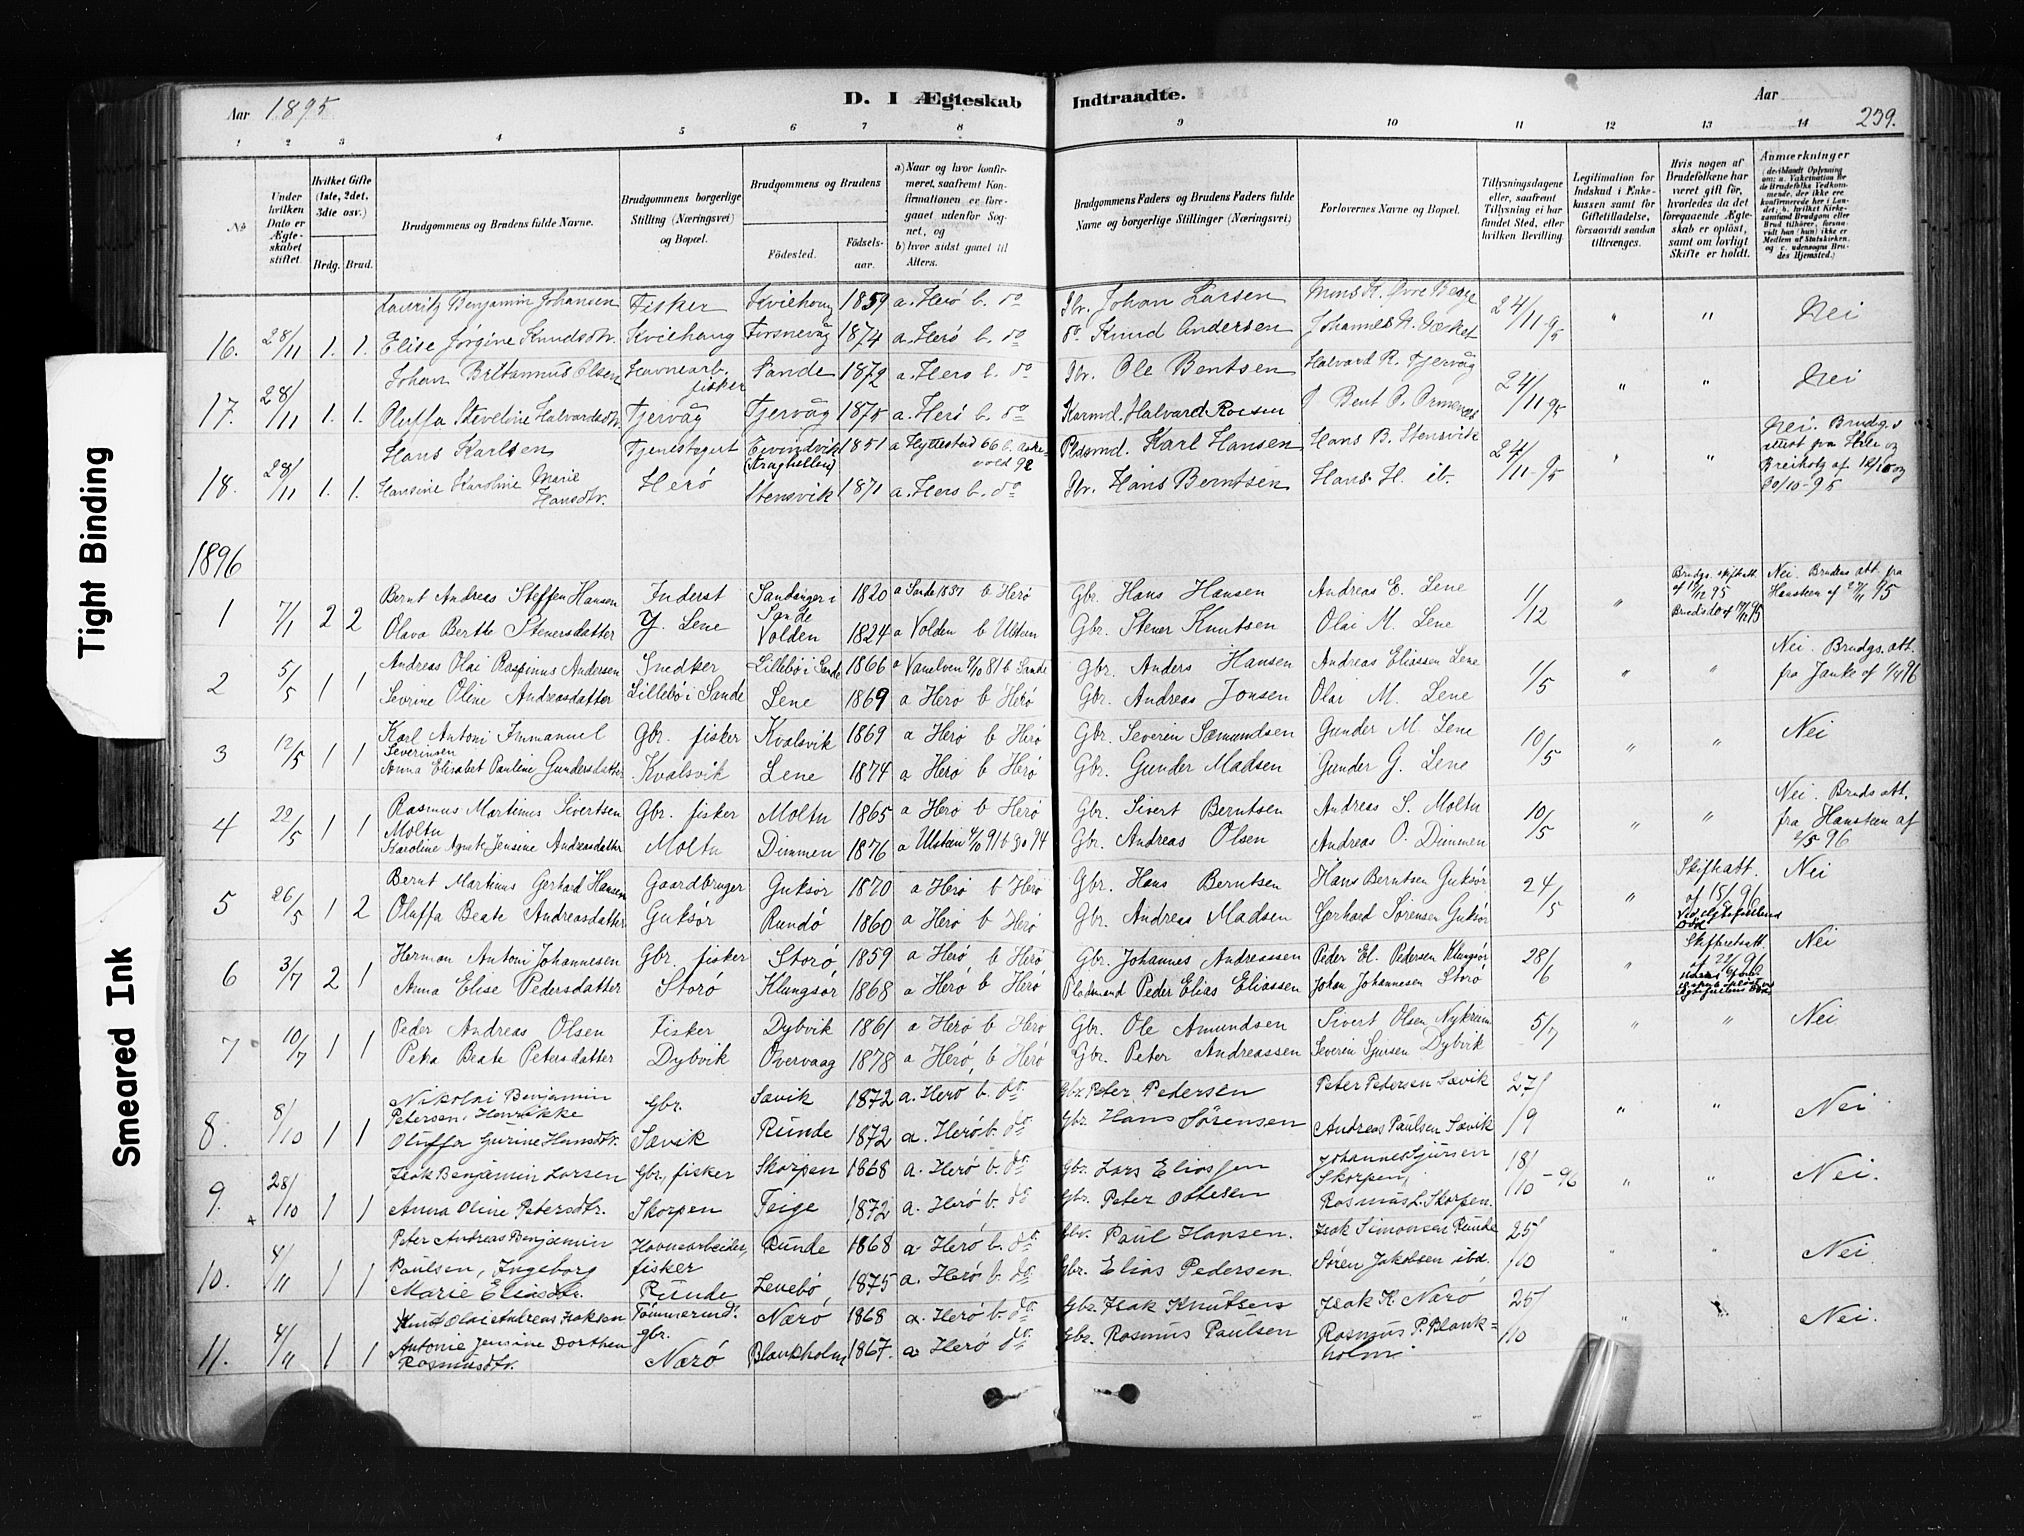 Aar 1895
D. I Ægteskab Indtraadte.
Aar
239.
1 2 3 4 5 6 7 8 9 10 11 12 13 14
№
Under hvilken Dato er Ægteskabet stiftet.
Hvilket Gifte (1ste, 2det, 3die osv.)
Brdg. Brud.
Brudgommens og Brudens fulde Navne.
Brudgommens borgerlige Stilling (Næringsvei) og Bopæl.
Brudgommens og Brudens
Fødested.
Fødselsaar.
a) Naar og hvor konfirmeret, saafremt Konfirmationen er foregaaet udenfor Sognet, og
b) hvor sidst gaaet til Alters.
Brudgommens Faders og Brudens Faders fulde Navne og borgerlige Stillinger (Næringsvei)
Forlovernes Navne og Bopæl.
Tillysningsdagene eller, saafremt Tillysning ei har fundet Sted, efter hvilken Bevilling.
Legitimation for Indskud i Enkekassen samt for Giftetilladelse, forsaavidt saadan tiltrænges.
Hvis nogen af Brudefolkene har været gift før, hvorledes da det foregaaende Ægteskab er opløst, samt om lovligt Skifte er holdt.
Anmærkninger
Lauritz Benjamin Johansen Fisker Kviehaug 1859 a. Herø b. do Gbr. Johan Larsen
16. 28/11 1. 1. Elise Jørgine Knudsdtr. Kviehaug Fosnevåg 1874 a. Herø b. do do Knud Andersen Johannes N. 24/11-95 " " Nei
Johan Britannus Olsen Havnearb. fisker Sande 1872 a. Herø b. do Gbr. Ole Bentsen Halvard R. Tjervåg
17. 28/11 1. 1. Oluffa Steveline Halvardsdtr. Tjervåg Tjervåg 1875 a. Herø b. do Halvard Bent P. 24/11-95 " " Nei
Hans Karlsen Eivindvik 1851 a. Hyllestad 66 b. Askevold 92 Pladsmd. Karl Hansen Hans B. Stensvik
18. 28/11 1. 1. Hansine Karoline Marie Hansdtr. Herø Stensvik 1871 a. Herø b. do Gbr. Hans Berntsen Hans H. ib. 24/11-95 " " Nei. Brudg.s attest fra og af 12/10 og 20/10-95
1896
Bernt Andreas Steffen Hansen Inderst Sandanger i Sande 1820 a Sande 1837 b Herø Gbr. Hans Hansen Andreas E. Lene
1 7/1 2 2 Olava Berthe Stenersdatter Y. Lene Volden 1824 a Volden b Ulstein Gbr. Stener Knutsen Olai M. Lene 1/12 " Brudgs. skifteatt. af 12/12 95 Nei. Brudens att. fra Hansteen af 27/11 95
Andreas Olai Rasmus Andersen Snedker Lillebø i Sande 1866 a Vanelven 2/10 81 b Sande Gbr. Anders Hansen Andreas Eliassen Lene
2 5/5 1 1 Sevrine Oline Andreasdatter Lillebø i Sande Lene 1869 a Herø b Herø Gbr. Andreas Jonsen Olai M. Lene 1/5 " " Nei. Brudgs. att. fra Janke af 1/4 96
Karl Antoni Immanuel Severinsen Gbr. fisker Kvalsvik 1869 a Herø b Herø Gbr. Severin Sæmundsen Gunder M. Lene
3 12/5 1 1 Anna Elisabet Pauline Gundersdatter Kvalsvik Lene 1874 a Herø b Herø Gbr. Gunder Madsen Gunder G. Lene 10/5 " " Nei
Rasmus Martinus Sivertsen Moltu Gbr. fisker Moltu 1865 a Herø b Herø Gbr. Sivert Berntsen Andreas S. Moltu
4 22/5 1 1 Karoline Agnete Jensine Andreasdatter Moltu Dimmen 1876 a Ulstein 4/10 91 b do 94 Gbr. Andreas Olsen Andreas O. Dimmen 10/5 " " Nei. Bruds att. fra Hansteen af 2/5 96
Bernt Martinus Gerhard Hansen Gaardbruger Guksør 1870 a Herø b Herø Gbr. Hans Berntsen Hans Berntsen Guksør
5 26/5 1 2 Oluffa Beate Andreasdatter Guksør Rundø 1860 a Herø b Herø Gbr. Andreas Madsen Gerhard Sørensen Guksør 24/5 " Skifteatt. af 15/5 96 Nei
Herman Antoni Johannesen Gbr. fisker Storø 1859 a Herø b Herø Gbr. Johannes Andreassen Peder El. Pedersen Klungsør
6 3/7 2 1 Anna Elise Pedersdatter Storø Klungsør 1868 a Herø b Herø Pladsmand Peder Elias Eliassen Johan Johannesen Storø 28/6 " Skifteretsatt. Nei
Peder Andreas Olsen Fisker Dybvik 1861 a Herø b Herø Gbr. Ole Amundsen Sivert Olsen
7 10/7 1 1 Petra Beate Petersdatter Dybvik Overvaag 1878 a Herø, b Herø Gbr. Peter Andreassen Severin Sjursen Dybvik 5/7 " " Nei
Nikolai Benjamin Petersen, Henrikke Gbr. Sævik 1872 a. Herø b. do. Gbr. Peter Pedersen Peter Pedersen Sævik
8. 8/10 1 1 Oluffa Gurine Hansdtr. Sævik Runde 1872 a. Herø b. do Gbr. Hans Sørensen Andreas Paulsen Sævik 27/9 " " Nei
Isak Benjamin Larsen Gbr., fisker Skorpen 1868 a. Herø b. do Gbr. Lars Eliassen Johannes Sjursen Skorpen,
9. 28/10 1 1 Anna Oline Petersdtr. Skorpen Teige 1872 a. Herø b. do Gbr. Peter Ottesen Rasmus L. Skorpen. 18/10-96 " " Nei.
Peter Andreas Benjamin Havnearbeider, Runde 1868 a. Herø b. do Gbr. Paul Hansen. Isak Simonsen Runde
10. 4/11 1 1 Paulsen, Ingeborg Marie Eliasdtr. fisker Runde Lenebø 1875 a. Herø b. do Gbr. Elias Pedersen. Søren Jakobsen ibd. 25/10 " " Nei
Knut Olai Andreas Isaksen Tømmermd. gbr. Nærø 1868 a. Herø b. do. Gbr. Isak Knutsen Isak K. Nærø
11. 4/11 1 1 Antonie Jensine Dorthea Rasmusdtr. Nærø Blankholm 1867. a. Herø do Gbr. Rasmus Paulsen Rasmus P. Blankholm 25/10 " " Nei.
Tight Binding
Smeared Ink